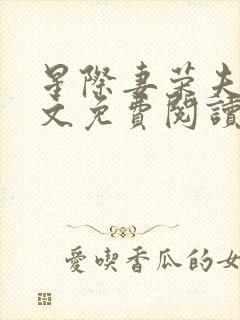 星際妻榮夫
文免費閱讀
愛喫香瓜的女